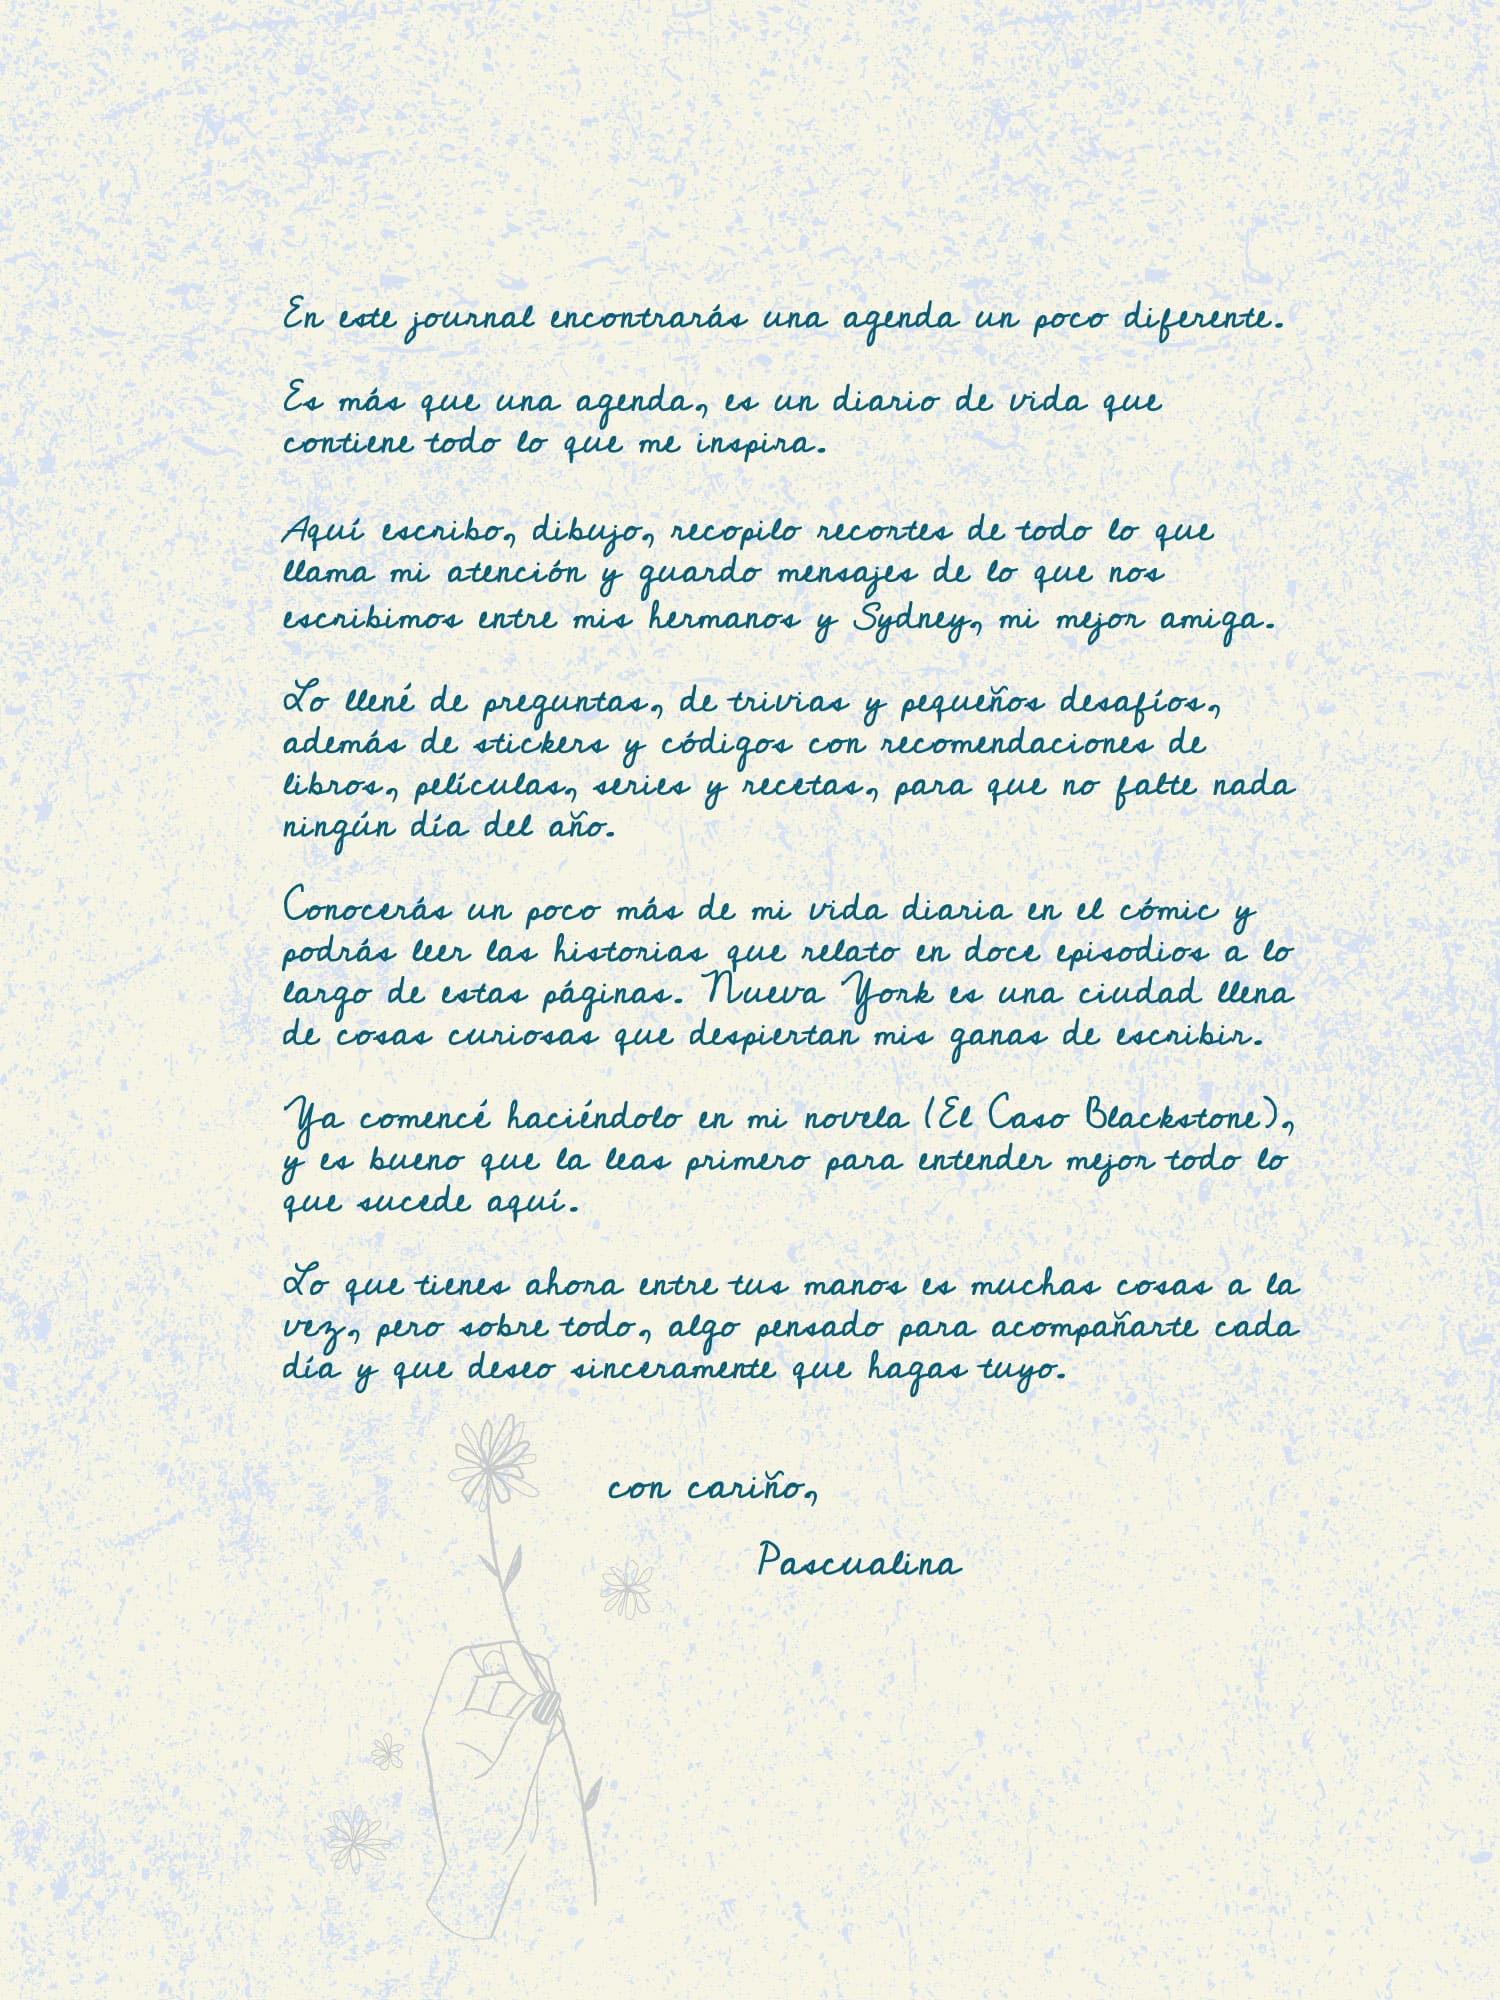 En este journal encontrarás una agenda un poco diferente.
Es más que una agenda, es un diario de vida que
contiene todo lo que me inspira.
Aquí escribo, dibujo, recopilo recortes de todo lo que
llama mi atención y guardo mensajes de lo que nos
escribimos entre mis hermanos y Sydney, mi mejor amiga.
Lo llené de preguntas, de trivias y pequeños desafíos,
además de stickers y códigos con recomendaciones de
libros, películas, series y recetas, para que no falte nada
ningún día del año.
Conocerás un poco más de mi vida diaria en el cómic y
podrás leer las historias que relato en doce episodios a lo
largo de estas páginas. Nueva York es una ciudad llena
de cosas curiosas que despiertan mis ganas de escribir.
Ya comencé haciéndolo en mi novela (El Caso Blackstone),
y es bueno que la leas primero para entender mejor todo lo
que sucede aquí.
Lo que tienes ahora entre tus manos es muchas cosas a la
vez, pero sobre todo, algo pensado para acompañarte cada
día y que deseo sinceramente que hagas tuyo.
con cariño,
Pascualina